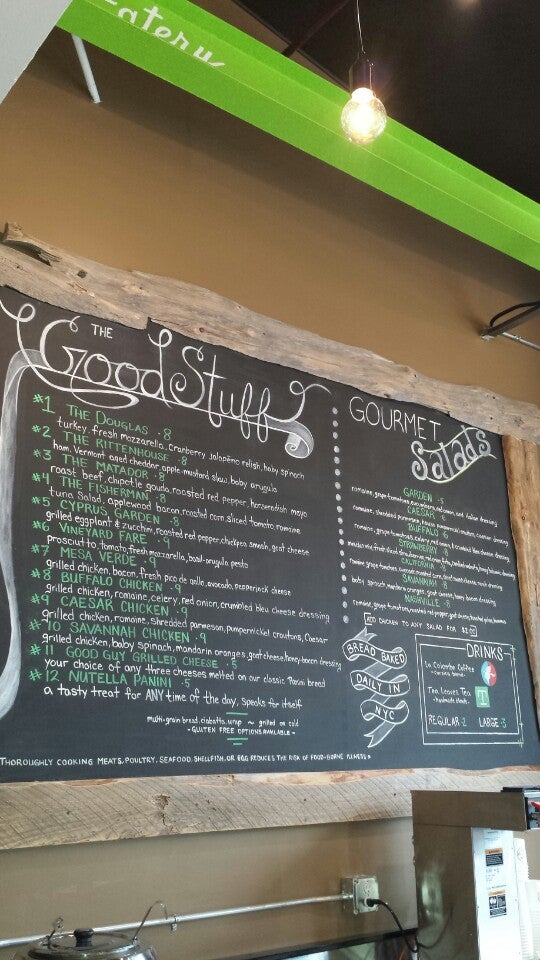 Eatery
THE
Good Stuff
#1 THE DOUGLAS · 8
turkey, fresh mozzarella, cranberry jalapeño relish, baby spinach
#2 THE RITTENHOUSE · 8
ham, Vermont aged cheddar, apple-mustard slaw, baby arugula
#3 THE MATADOR · 8
roast beef, chipotle gouda, roasted red pepper, horseradish mayo
#4 THE FISHERMAN · 8
tuna salad, applewood bacon, roasted corn, sliced tomato, romaine
#5 CYPRUS GARDEN · 8
grilled eggplant & zucchini, roasted red pepper, chickpea smash, goat cheese
#6 VINEYARD FARE · 9
prosciutto, tomato, fresh mozzarella, basil-arugula pesto
#7 MESA VERDE · 9
grilled chicken, bacon, fresh pico de gallo, avocado, pepperjack cheese
#8 BUFFALO CHICKEN · 9
grilled chicken, romaine, celery, red onion, crumbled bleu cheese dressing
#9 CAESAR CHICKEN · 9
grilled chicken, romaine, shredded parmesan, pumpernickel croutons, Caesar
#10 SAVANNAH CHICKEN · 9
grilled chicken, baby spinach, mandarin oranges, goat cheese, honey-bacon dressing
#11 GOOD GUY GRILLED CHEESE · 5
your choice of any three cheeses melted on our classic Panini bread
#12 NUTELLA PANINI · 5
a tasty treat for ANY time of the day, speaks for itself
multi-grain bread, ciabatta, wrap ~ grilled or cold
- GLUTEN FREE OPTIONS AVAILABLE -
THOROUGHLY COOKING MEATS, POULTRY, SEAFOOD, SHELLFISH, OR EGG REDUCES THE RISK OF FOOD-BORNE ILLNESS
GOURMET
Salads
GARDEN · 5
CAESAR · 6
BUFFALO · 6
STRAWBERRY · 8
CALIFORNIA
SAVANNAH · 8
baby spinach, mandarin oranges, goat cheese, honey bacon dressing
ADD CHICKEN TO ANY SALAD FOR $2.00
BREAD BAKED
DAILY IN
NYC
DRINKS
La Colombe Coffee
Tea Leaves Tea
T
REGULAR · 2 LARGE · 3